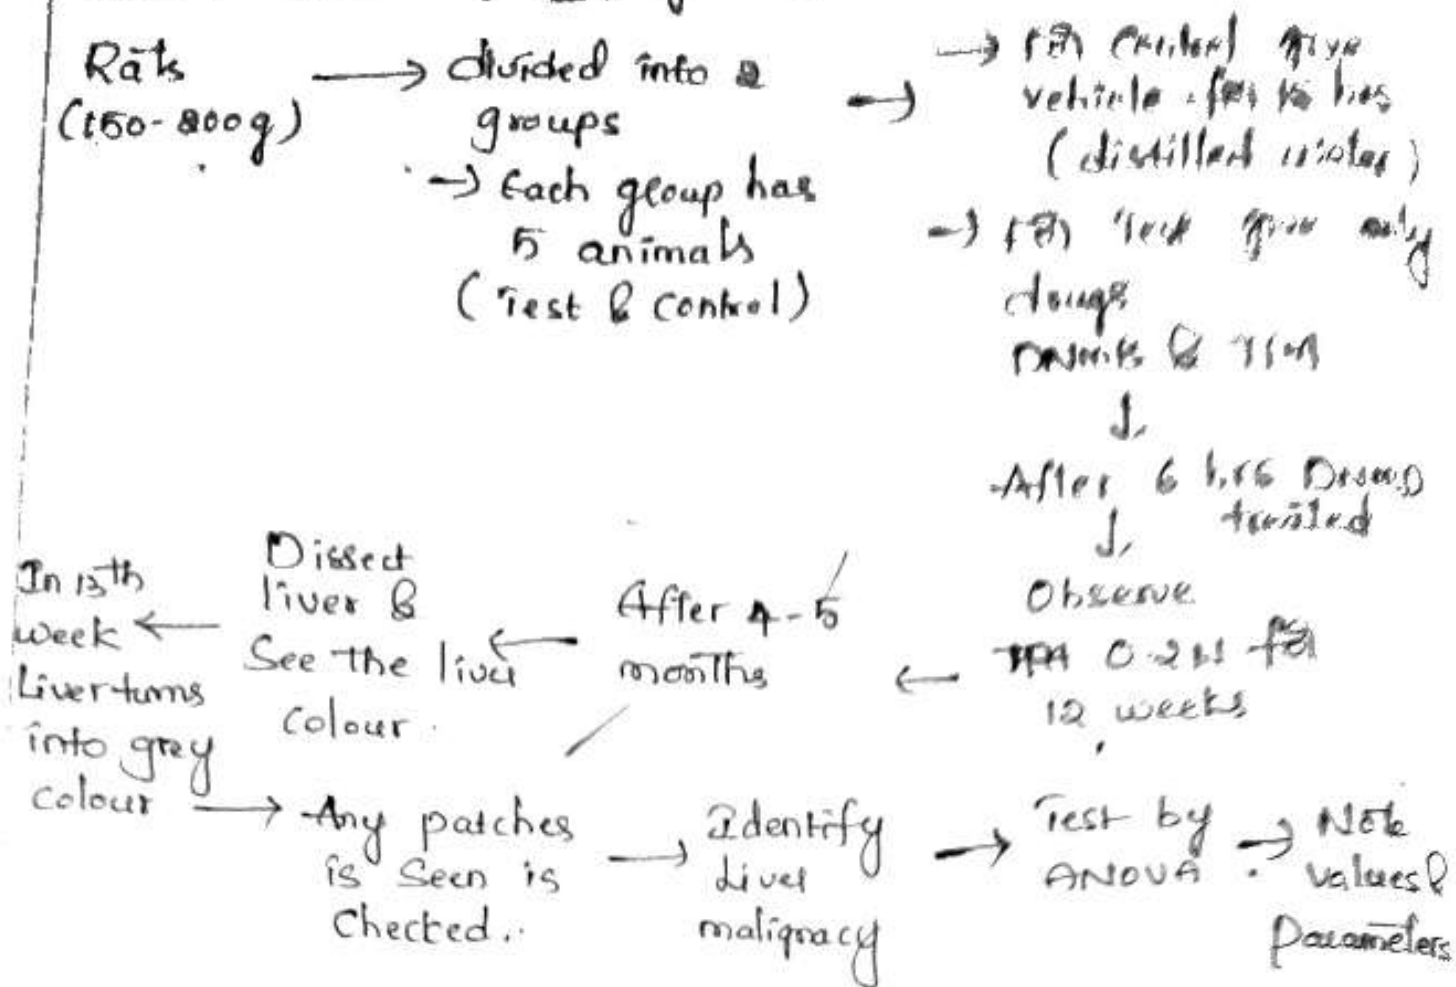 Rats → divided into 2
(150-200g) groups
→ Each group has
5 animals
(Test & control)
→ for control give
vehicle for hrs
(distilled water)
→ for Test give only
drugs
&
↓
After 6 hrs
treated
↓
Observe
0.2 for
12 weeks
←
After 4-5
months
←
Dissect
liver &
See the liver
colour.
←
In 13th
week
Liver turns
into grey
colour
→ Any patches
is Seen is
Checked..
→ Identify
Liver
malignacy
→ Test by
ANOVA.
→ Note
values &
Parameters